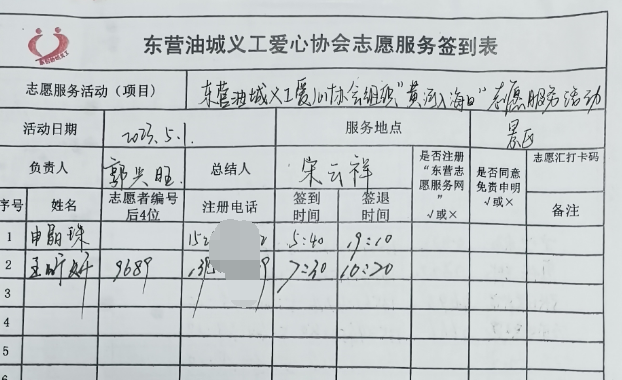 东营油城义工爱心协会志愿服务签到表
志愿服务活动（项目） 东营油城义工爱心协会组织"黄河入海口"志愿服务活动
活动日期 2023.5.1 服务地点 景区
负责人 郭兴旺 总结人 宋云祥 是否注册“东营志愿服务网”√或× 是否同意免责申明√或× 志愿汇打卡码
序号 姓名 志愿者编号后4位 注册电话 签到时间 签退时间 备注
1 申晶珠 152 2 5:40 19:10
2 王昕妤 9689 139 9 7:30 10:20
3
4
5
6